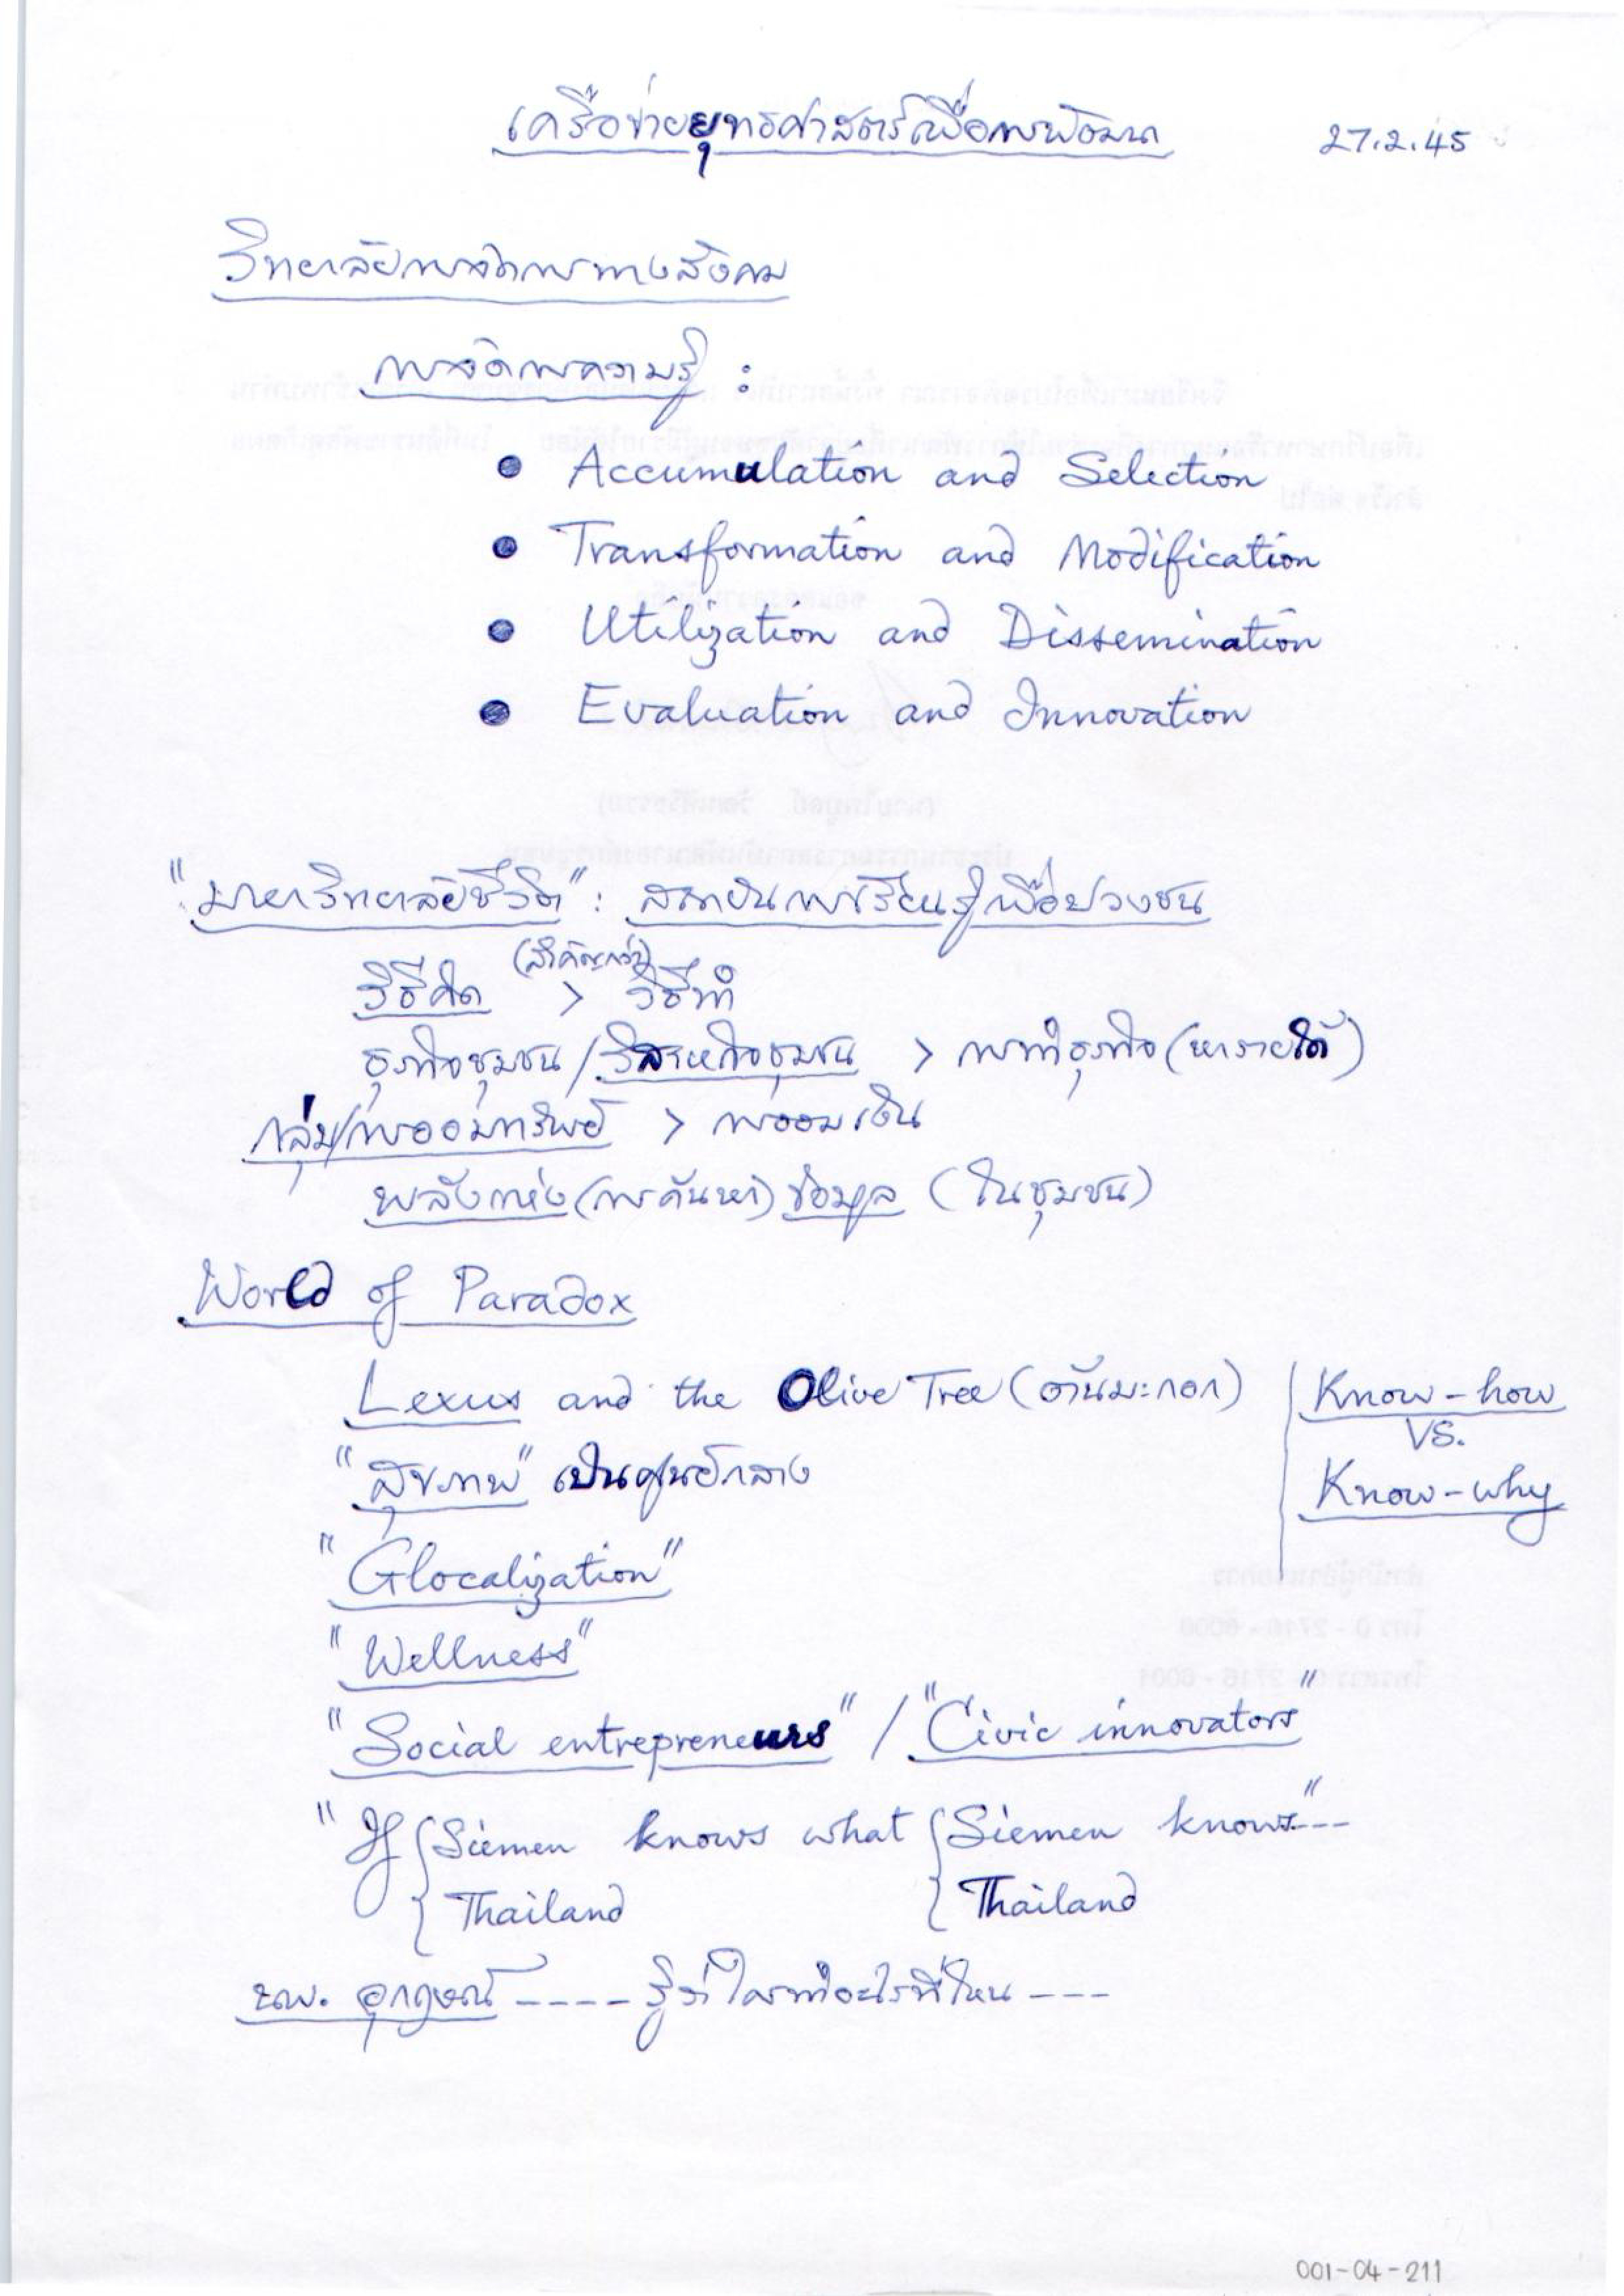 เครือข่ายยุทธศาสตร์เพื่อการพัฒนา 27.2.45
วิทยาลัยการจัดการทางสังคม
การจัดการความรู้ :
● Accumulation and Selection
● Transformation and Modification
● Utilization and Dissemination
● Evaluation and Innovation
"มหาวิทยาลัยชีวิต" : สถาบันการเรียนรู้เพื่อปวงชน
(สำคัญกว่า)
วิธีคิด > วิธีทำ
ธุรกิจชุมชน / วิสาหกิจชุมชน > การทำธุรกิจ (หารายได้)
กลุ่ม/การออมทรัพย์ > การออมเงิน
พลังแห่ง (การค้นหา) ข้อมูล (ในชุมชน)
World of Paradox
Lexus and the Olive Tree (ต้นมะกอก) Know-how
VS.
"สุขภาพ" เป็นศูนย์กลาง Know-why
"Glocalization"
"Wellness"
"Social entrepreneurs" / "Civic innovators"
"If { Siemen knows what { Siemen knows" ---
Thailand Thailand
นพ. อุกฤษณ์ ---- รู้ว่าใครทำอะไรที่ไหน ---
001-04-211